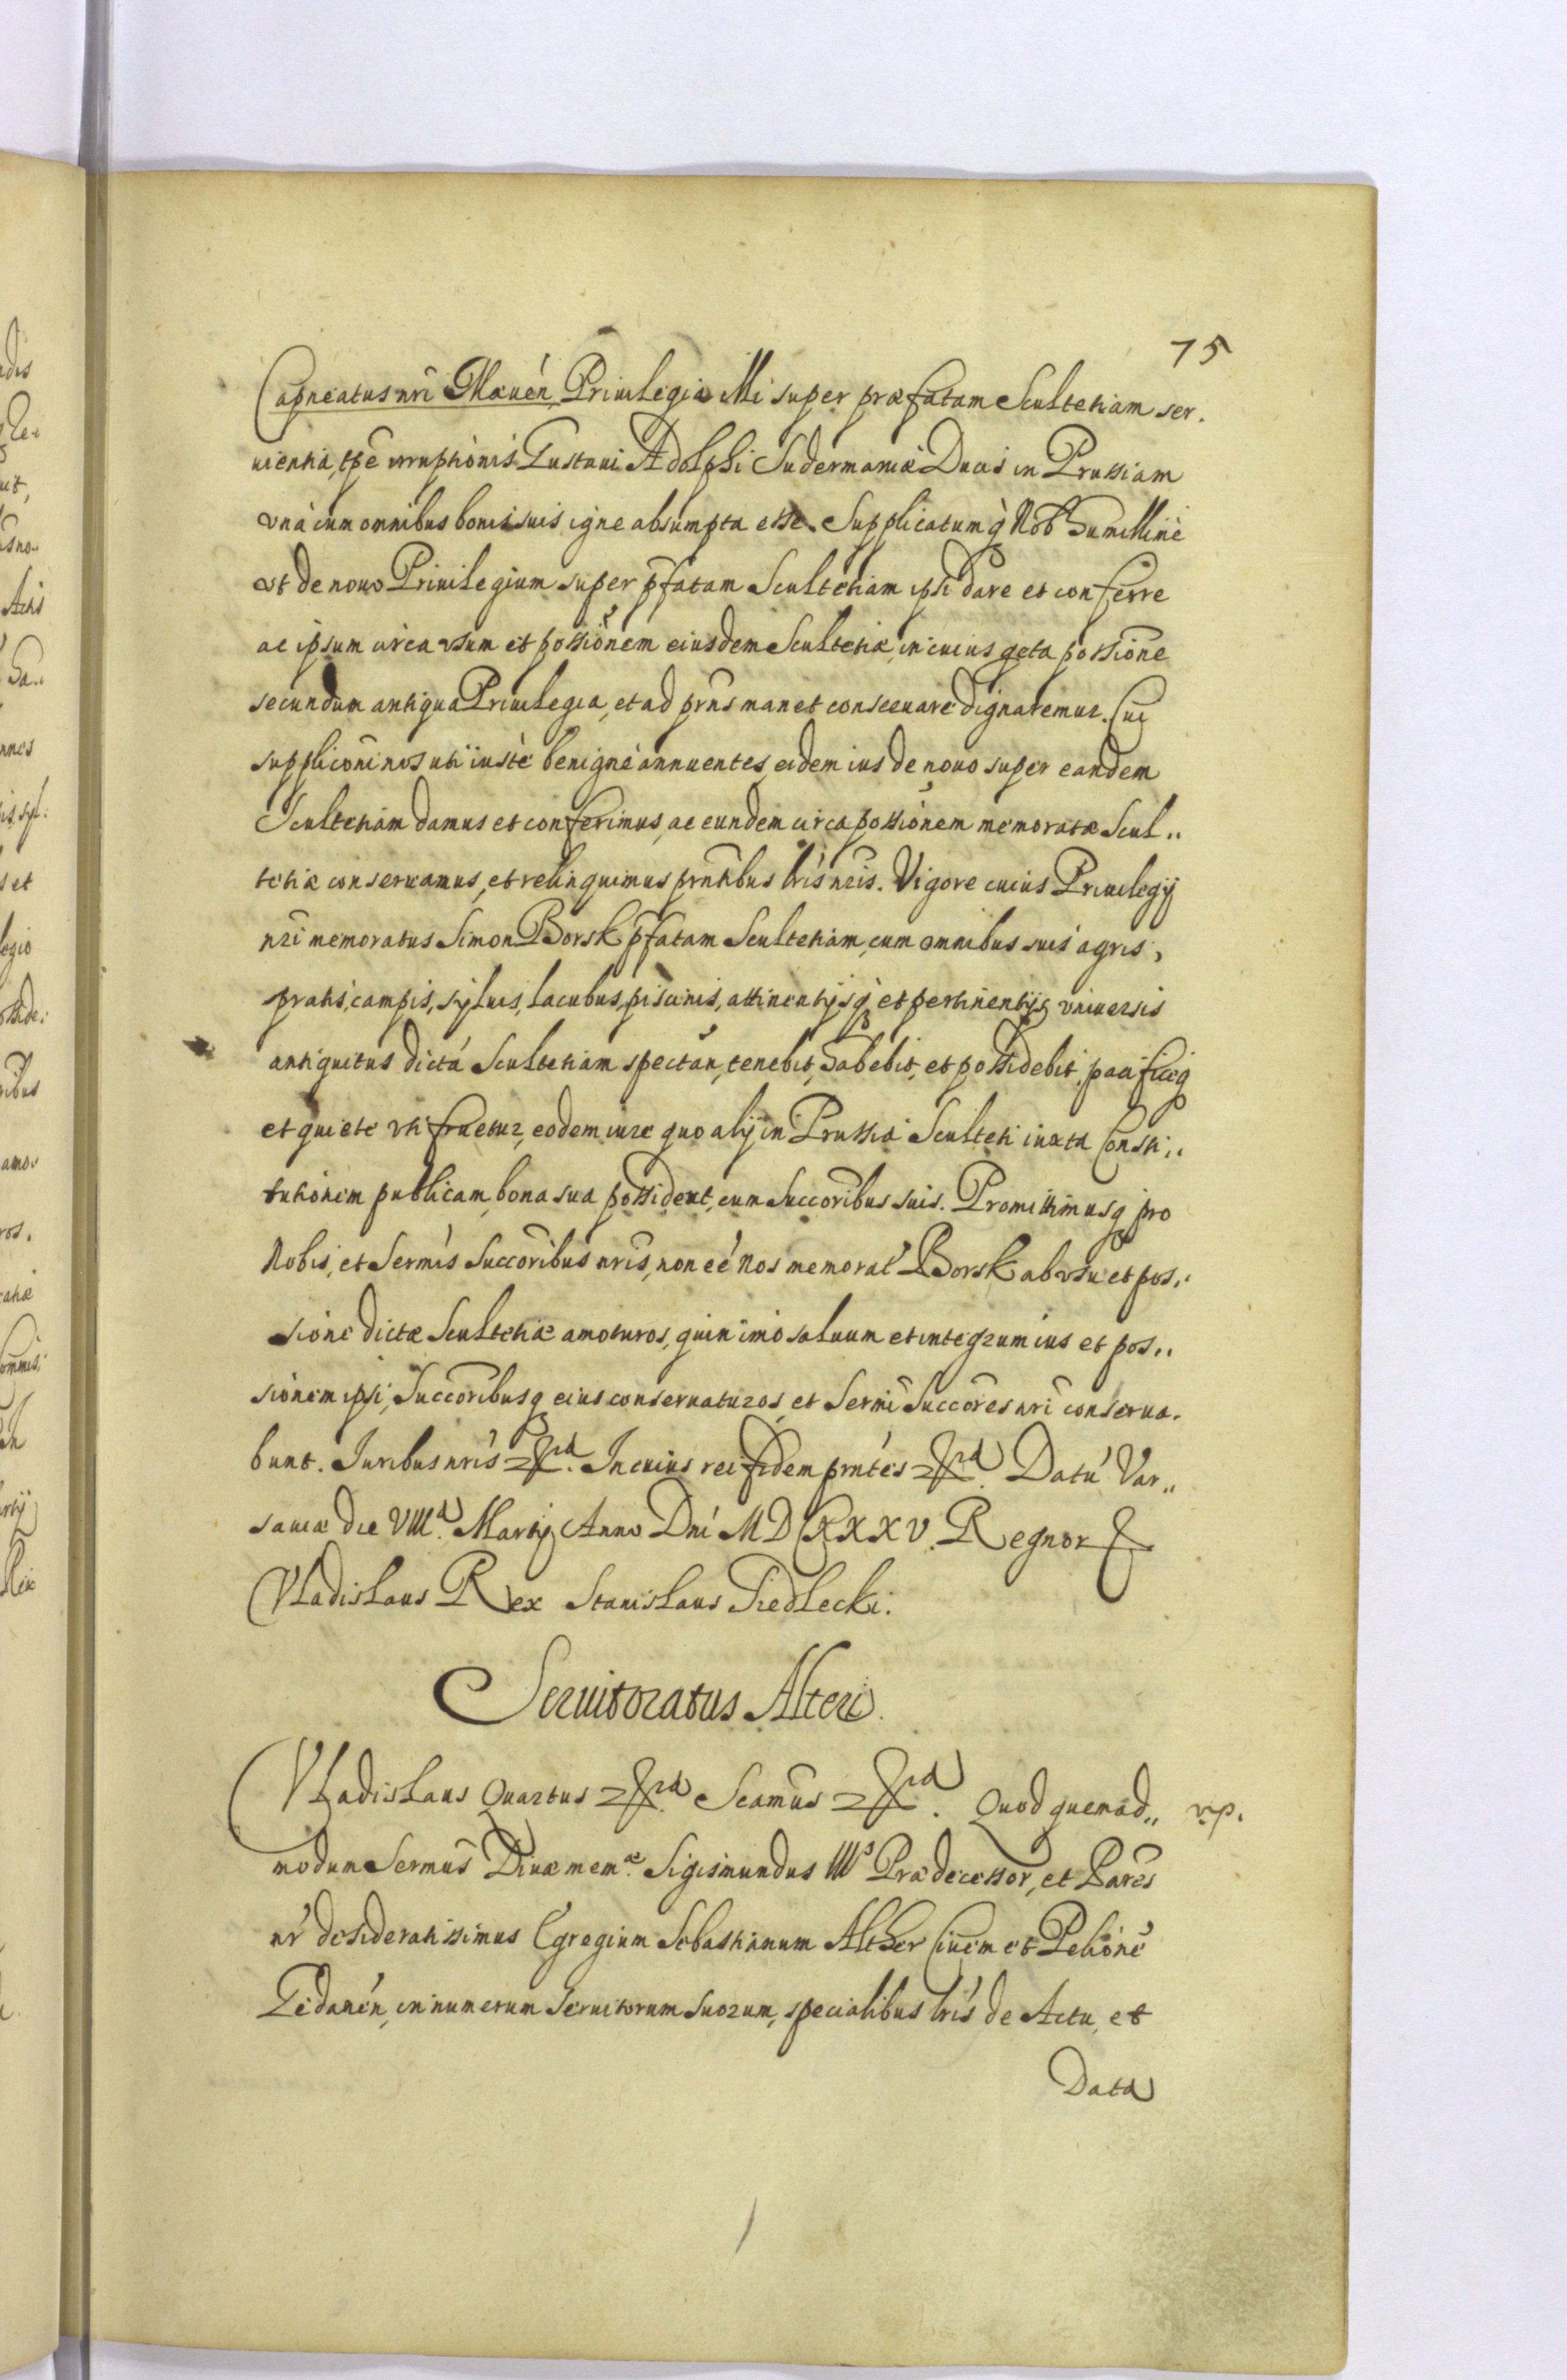 75
Capneatus nri Mæuén, Priuilegia illi super præfatam Scultetiam ser.
uientia, tpe irruptionis Gustaui Adolphi Sudermaniæ Ducis in Prussiam
vnà cum omnibus bonis suis igne absumpta esse. Supplicatumq̀ Nob humillimè
vt de nouo Priuilegium super pfatam Scultetiam ipsi dare et conferre
ac ipsum circa vsum et possionem eiusdem Scultetiæ, in cuius qeta possione
secundum antiqua Priuilegia, et ad prns manet conseruare dignaremur. Cui
suppliconi nos uti iustè benignè annuentes, eidem ius de nouo super eandem
Scultetiam damus et conferimus, ac eundem circa possionem memoratæ Scul„
tetiæ conseruamus, et relinquimus prntibus lris nris. Vigore cuius Priuilegij
nri memoratus Simon Borsk pfatam Scultetiam, cum omnibus suis agris,
pratis, campis, syluis, lacubus, piscinis, attinentijsq̀ et pertinentijs vniuersis
antiquitus dictá Scultetiam spectan, tenebit, habebit, et possidebit, pacificeq
et quiete vti fruetur, eodem iure quo alij in Prussia Sculteti iuxta Consti„
tutionem publicam, bona sua possident, cum Succoribus suis. Promittimusq pro
Nobis, et Sermis Succoribus nris, non eé Nos memorat Borsk ab vsu et pos„
sione dictæ Scultetiæ amoturos, quin imo saluum et integrum ius et pos„
sionem ipsi, Succoribusq eius conseruaturos, et Sermi Succores nri conserua.
bunt. Iuribus nris &rd. In cuius rei fidem prntes &rd. Datú Var„
sauiæ die VIIIa. Martij Anno Dni MDCXXXV. Regnor &
Vladislaus Rex Stanislaus Siedlecki.
Seruitoratus Alteri.
Vladislaus Quartus &rd Scamus &rd. Quod quemad„ vp.
modum Sermus Diuæ memæ. Sigismundus IIIs Prædecessor, et Parens
nr desideratissimus Egregium Sebastianum Alther Ciuem et Pelioné
Gedanén, in numerum Seruitorum suorum, specialibus lris de Actu, et
Data